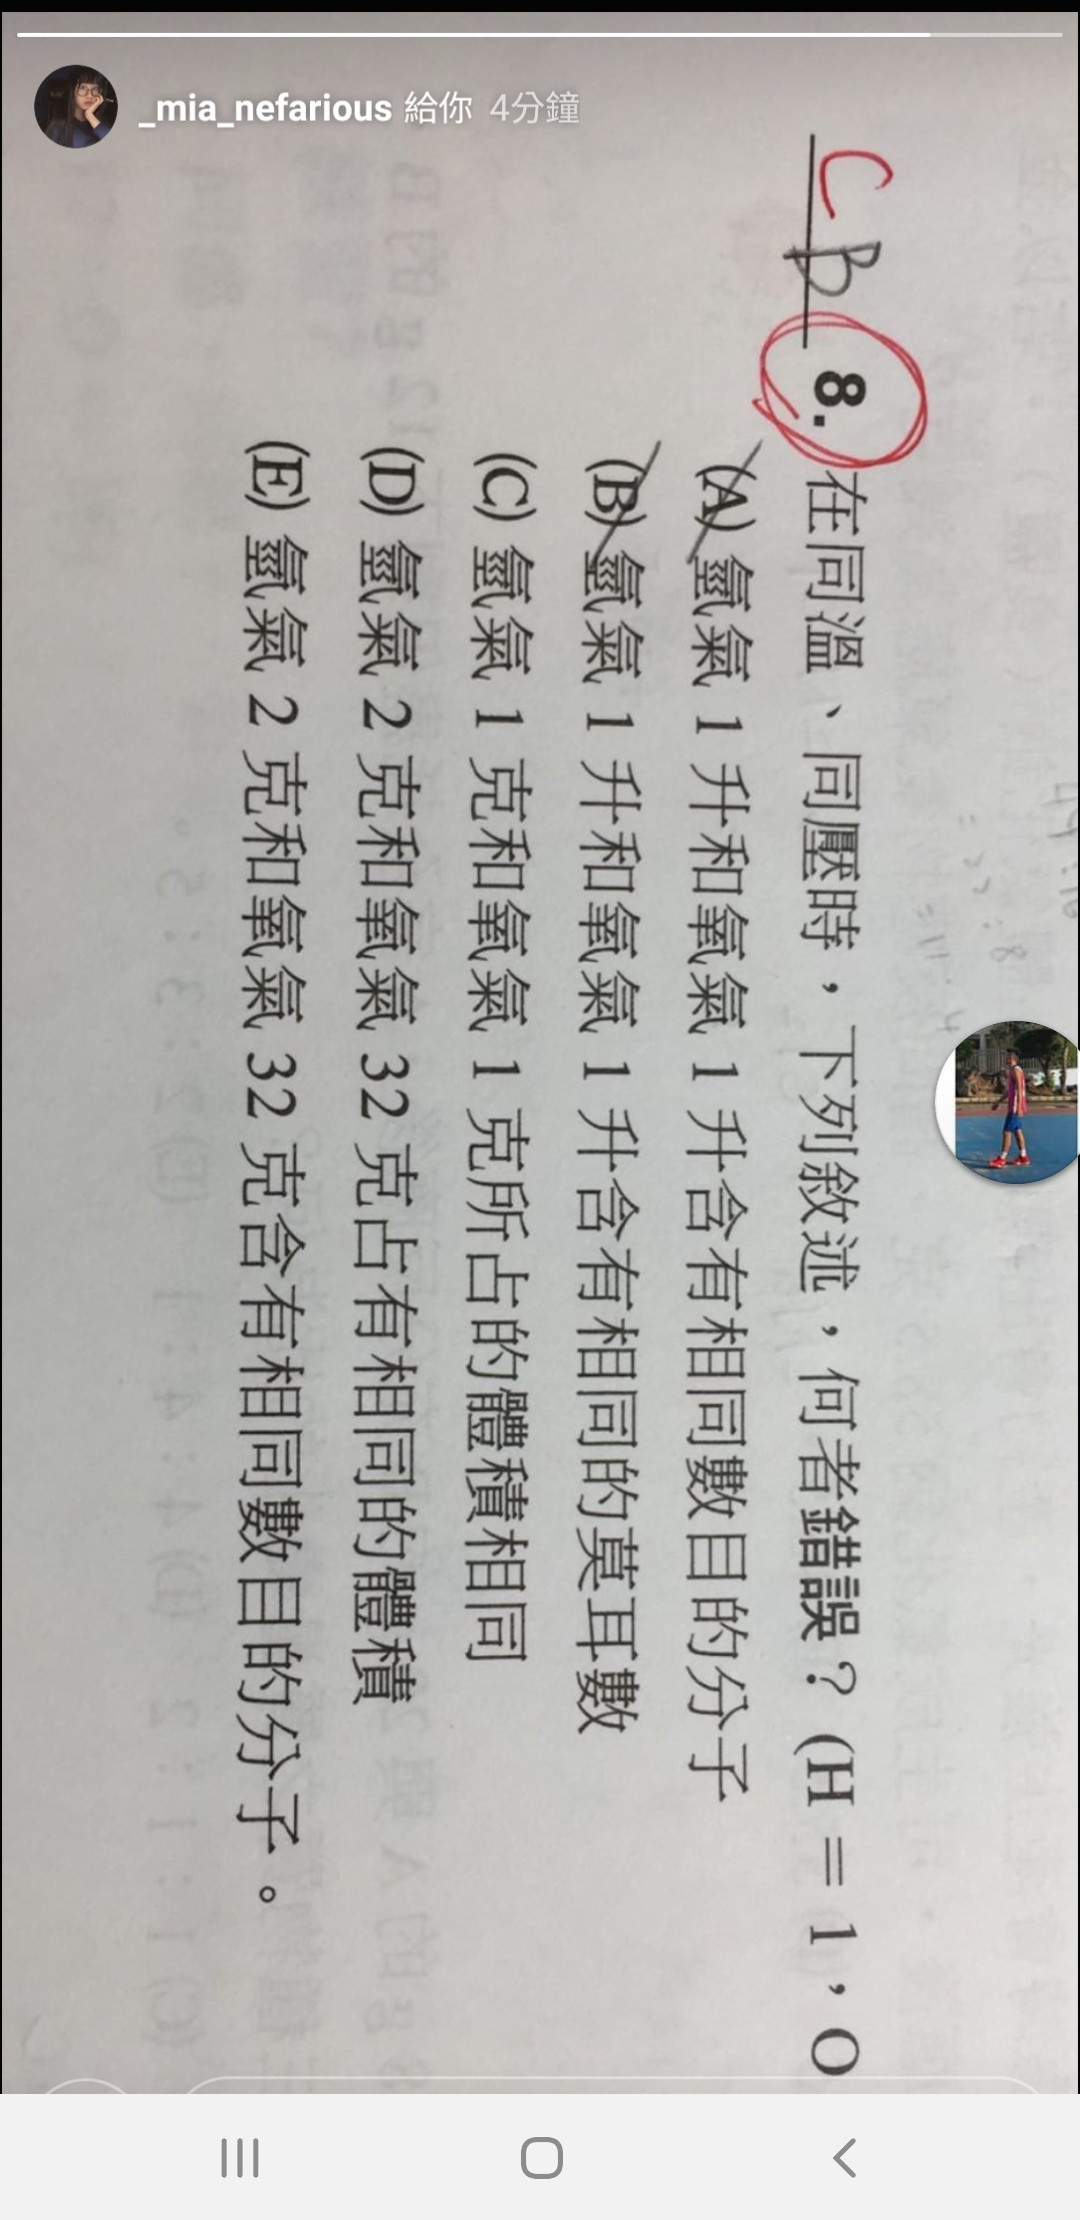 _mia_nefarious 給你 4分鐘
C B 8. 在同溫、同壓時,下列敘述,何者錯誤?(H = 1,O
(A) 氫氣 1 升和氧氣 1 升含有相同數目的分子
(B) 氫氣 1 升和氧氣 1 升含有相同的莫耳數
(C) 氫氣 1 克和氧氣 1 克所占的體積相同
(D) 氫氣 2 克和氧氣 32 克占有相同的體積
(E) 氫氣 2 克和氧氣 32 克含有相同數目的分子。